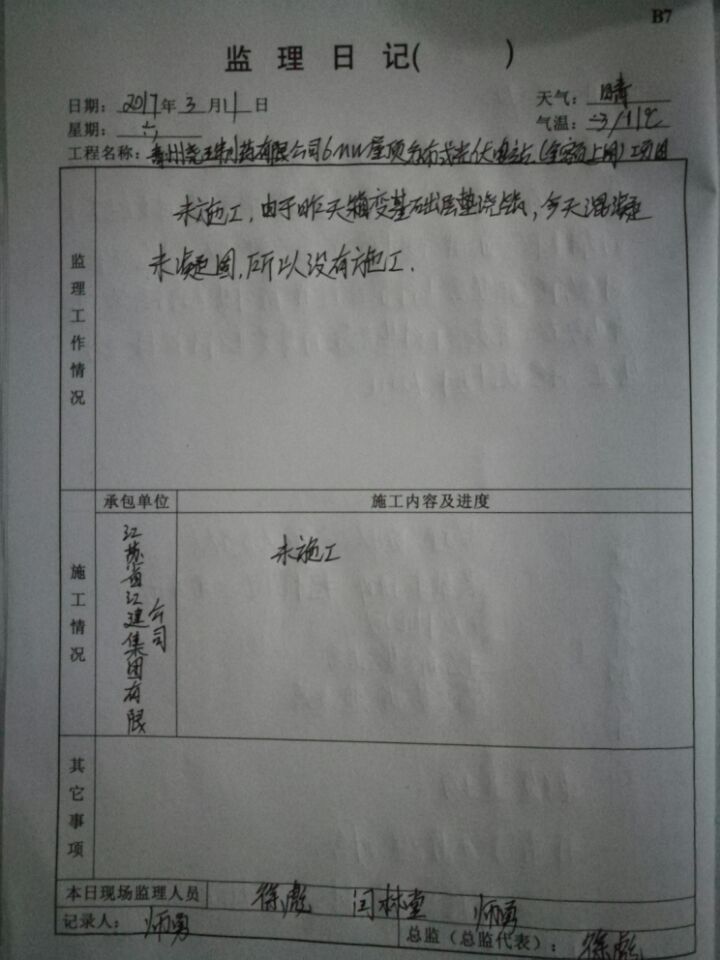 B7
监 理 日 记( )
日期: 2017 年 3 月 11 日 天气: 晴
星期: 六 气温: -3/11℃
工程名称: 青州尧王制药有限公司6MW屋顶分布式光伏电站(全额上网)项目
监理工作情况
未施工,由于昨天箱变基础层垫浇筑,今天混凝
未凝固,所以没有施工.
承包单位 施工内容及进度
施工情况
江苏省江建集团有限
公司
未施工
其它事项
本日现场监理人员 徐彪 闫林堂 师勇
记录人: 师勇 总监(总监代表): 徐彪